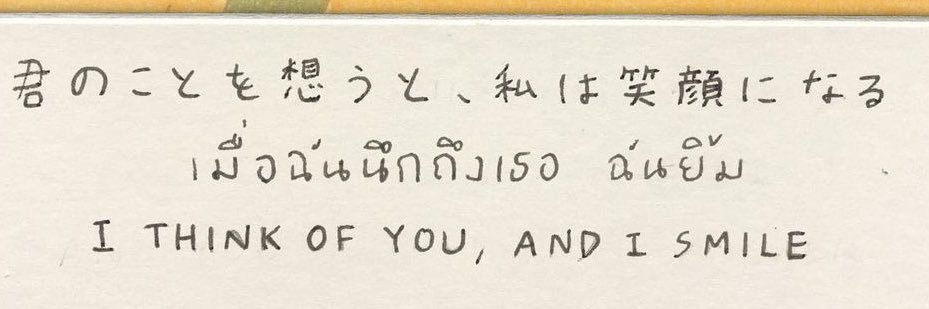 君のことを想うと、私は笑顔になる
เมื่อฉันนึกถึงเธอ ฉันยิ้ม
I THINK OF YOU, AND I SMILE